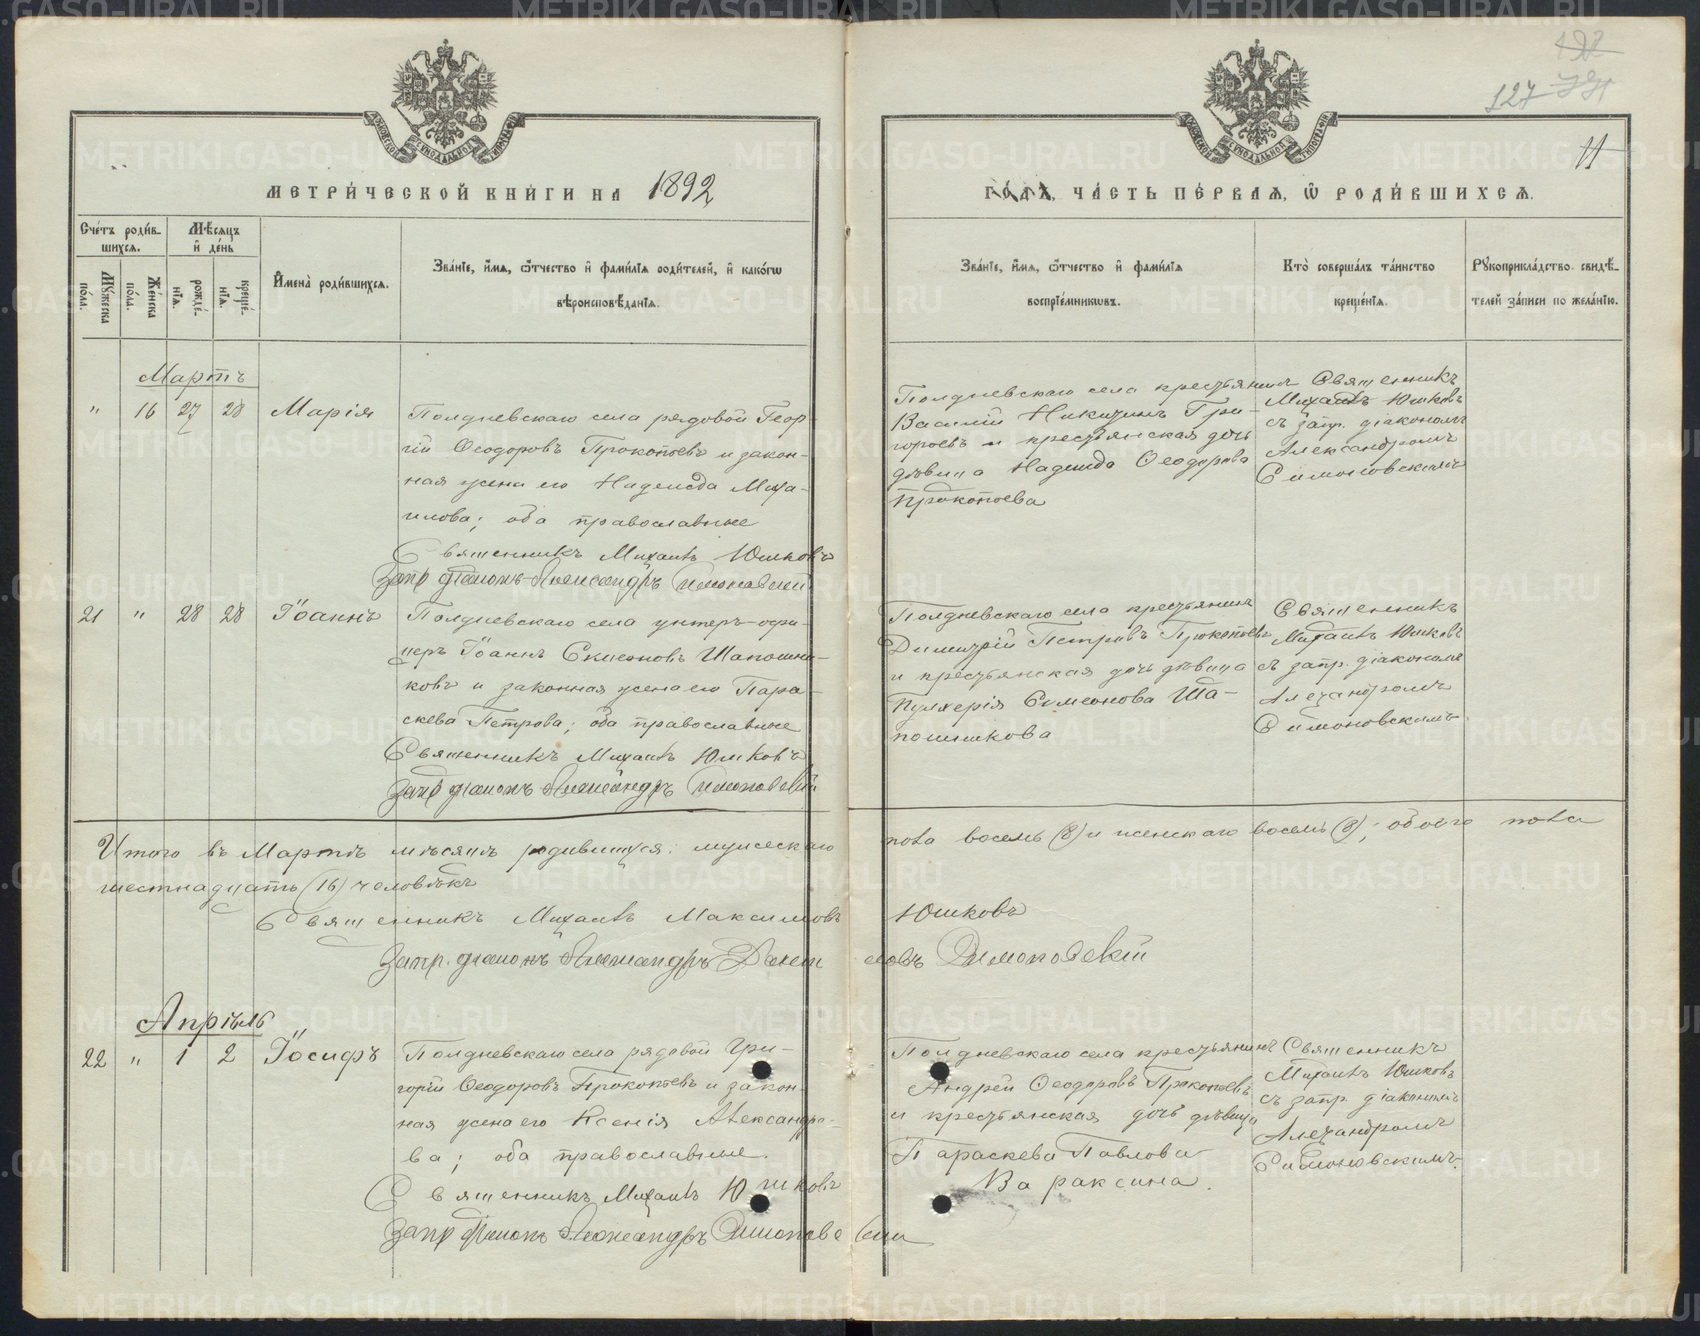 127
11
МЕТРИЧЕСКОЙ КНИГИ НА 1892
ГОДЪ, ЧАСТЬ ПЕРВАЯ, Ѡ РОДИВШИХСЯ.
Счетъ родив-
шихся.
Мужеска пола.
Женска пола.
Мѣсяцъ и день
рожденія.
крещенія.
Имена родившихся.
Званіе, имя, ѿчество и фамилія родителей, и какогѡ
вѣроисповѣданія.
Званіе, имя, ѿчество и фамилія
воспріемникѡвъ.
Кто совершалъ таинство
крещенія.
Рукоприкладство свидѣ-
телей записи по желанію.
Мартъ
" 16 27 28 Марія
Полдневскаго села рядовой Геор-
гій Ѳеодоровъ Прокопьевъ и закон-
ная жена его Надежда Миха-
илова; оба православные
Священникъ Михаилъ Юшковъ
Запр. діаконъ Александръ Симоновскій
Полдневскаго села крестьянинъ
Василій Никитинъ Гри-
горьевъ и крестьянская дочь
дѣвица Надежда Ѳеодорова
Прокопьева
Священникъ
Михаилъ Юшковъ
съ запр. діакономъ
Александромъ
Симоновскимъ
21 " 28 28 Іоаннъ
Полдневскаго села унтеръ-офи-
церъ Іоаннъ Симеоновъ Шапошни-
ковъ и законная жена его Пара-
скева Петрова; оба православные
Священникъ Михаилъ Юшковъ
Запр. діаконъ Александръ Симоновскій
Полдневскаго села крестьянинъ
Димитрій Петровъ Прокопьевъ
и крестьянская дочь дѣвица
Пулхерія Симеонова Ша-
пошникова
Священникъ
Михаилъ Юшковъ
съ запр. діакономъ
Александромъ
Симоновскимъ
Итого въ Мартѣ мѣсяцѣ родившихся: мужескаго пола восемь (8) и женскаго восемь (8); обоего пола
шестнадцать (16) человѣкъ
Священникъ Михаилъ Максимовъ Юшковъ
Запр. діаконъ Александръ Симоновскій
Апрѣль
22 " 1 2 Іосифъ
Полдневскаго села рядовой Гри-
горій Ѳеодоровъ Прокопьевъ и закон-
ная жена его Ксенія Александро-
ва; оба православные.
Священникъ Михаилъ Юшковъ
Запр. діаконъ Александръ Симоновскій
Полдневскаго села крестьянинъ
Андрей Ѳеодоровъ Прокопьевъ
и крестьянская дочь дѣвица
Параскева Павлова
Вараксина.
Священникъ
Михаилъ Юшковъ
съ запр. діакономъ
Александромъ
Симоновскимъ.
METRIKI.GASO-URAL.RU